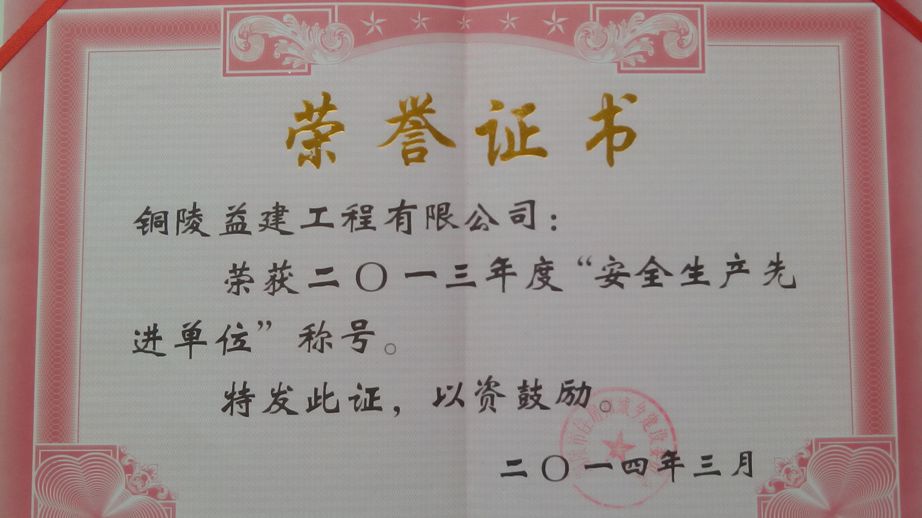 荣誉证书
铜陵益建工程有限公司：
荣获二〇一三年度“安全生产先
进单位”称号。
特发此证，以资鼓励。
二〇一四年三月